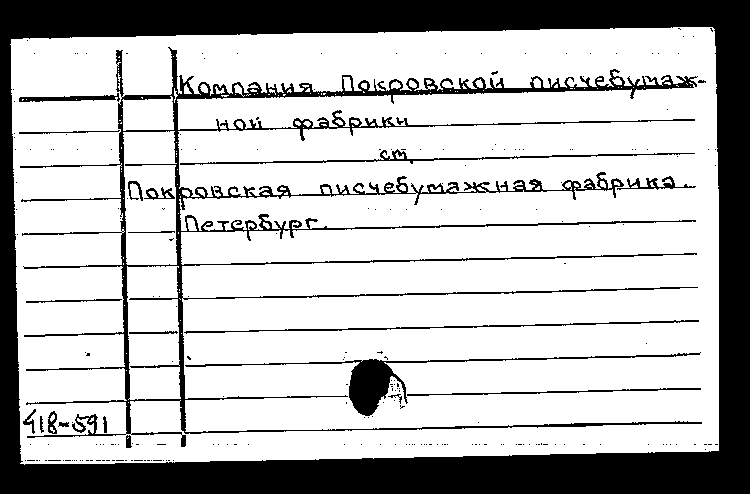 Компания Покровской писчебумаж-
ной фабрики
см.
Покровская писчебумажная фабрика.
Петербург.
418-591